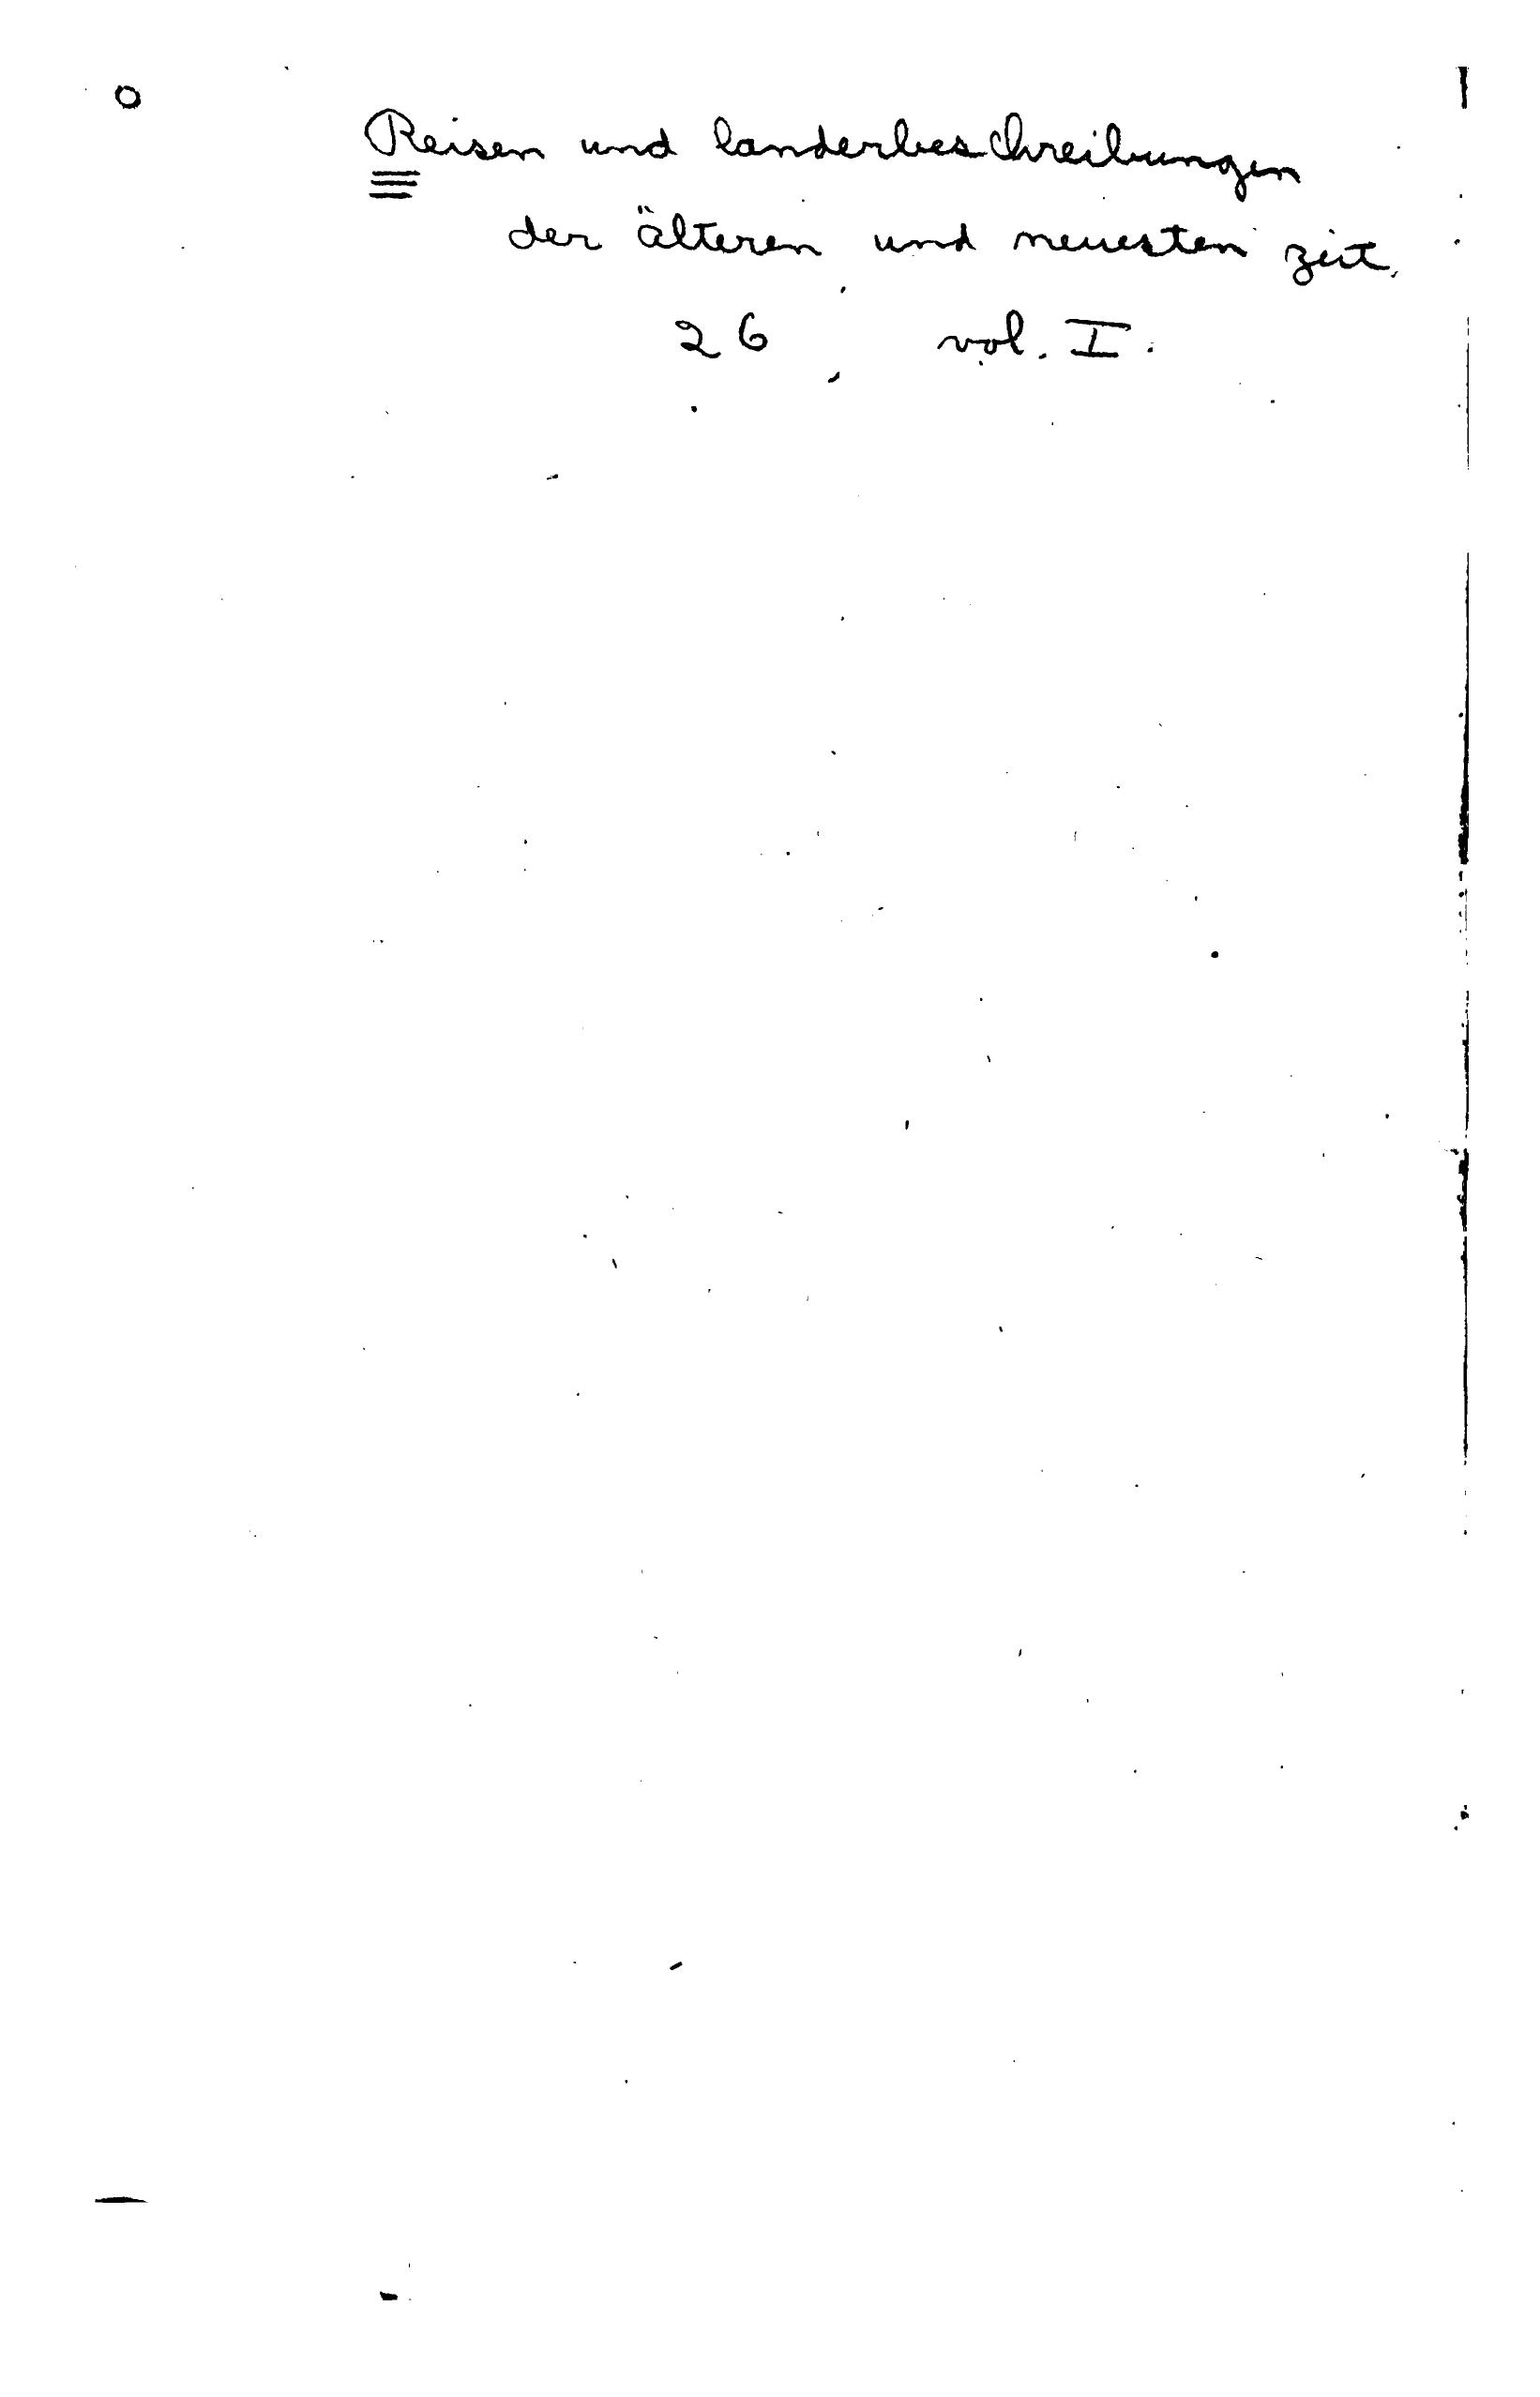 Reisen und landerbeschreibungen
der älteren und neuesten zeit.
26 vol. I.